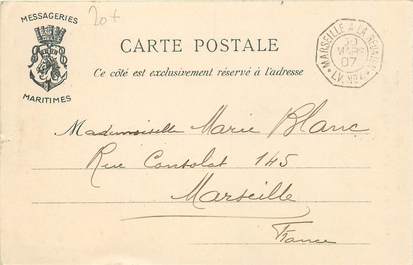 MESSAGERIES
MARITIMES
20+
CARTE POSTALE
Ce côté est exclusivement réservé à l'adresse
MARSEILLE A LA RÉUNION
07
LV. No 4
Mademoiselle Marie Blanc
Rue Consolat 145
Marseille
France